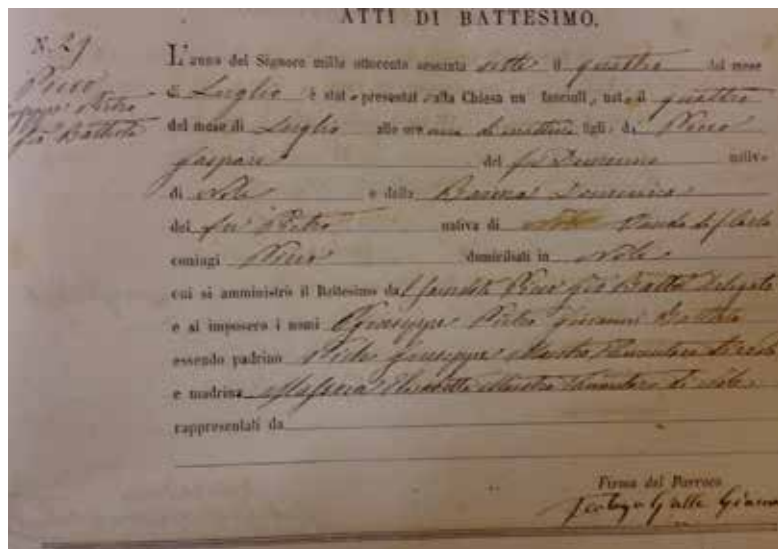 ATTI DI BATTESIMO.
N. 29
Picco
Giuseppe Pietro
Gio Battista
L'anno del Signore mille ottocento sessanta sette il quattro del mese
di Luglio è stato presentato alla Chiesa un fanciullo, nato il quattro
del mese di Luglio alle ore una di mattina figlio da Picco
Gaspare del fu nativo
di Nole e della Domenica
del fu Pietro nativa di
coniugi Picco domiciliati in Nole
cui si amministrò il Battesimo dal Picco Gio Batta delegato
e si imposero i nomi Giuseppe Pietro Giovanni Battista
essendo padrino Giuseppe Maestro di Nole
e madrina Maestra di Nole
rappresentati da
Firma del Parroco
Teologo Galle